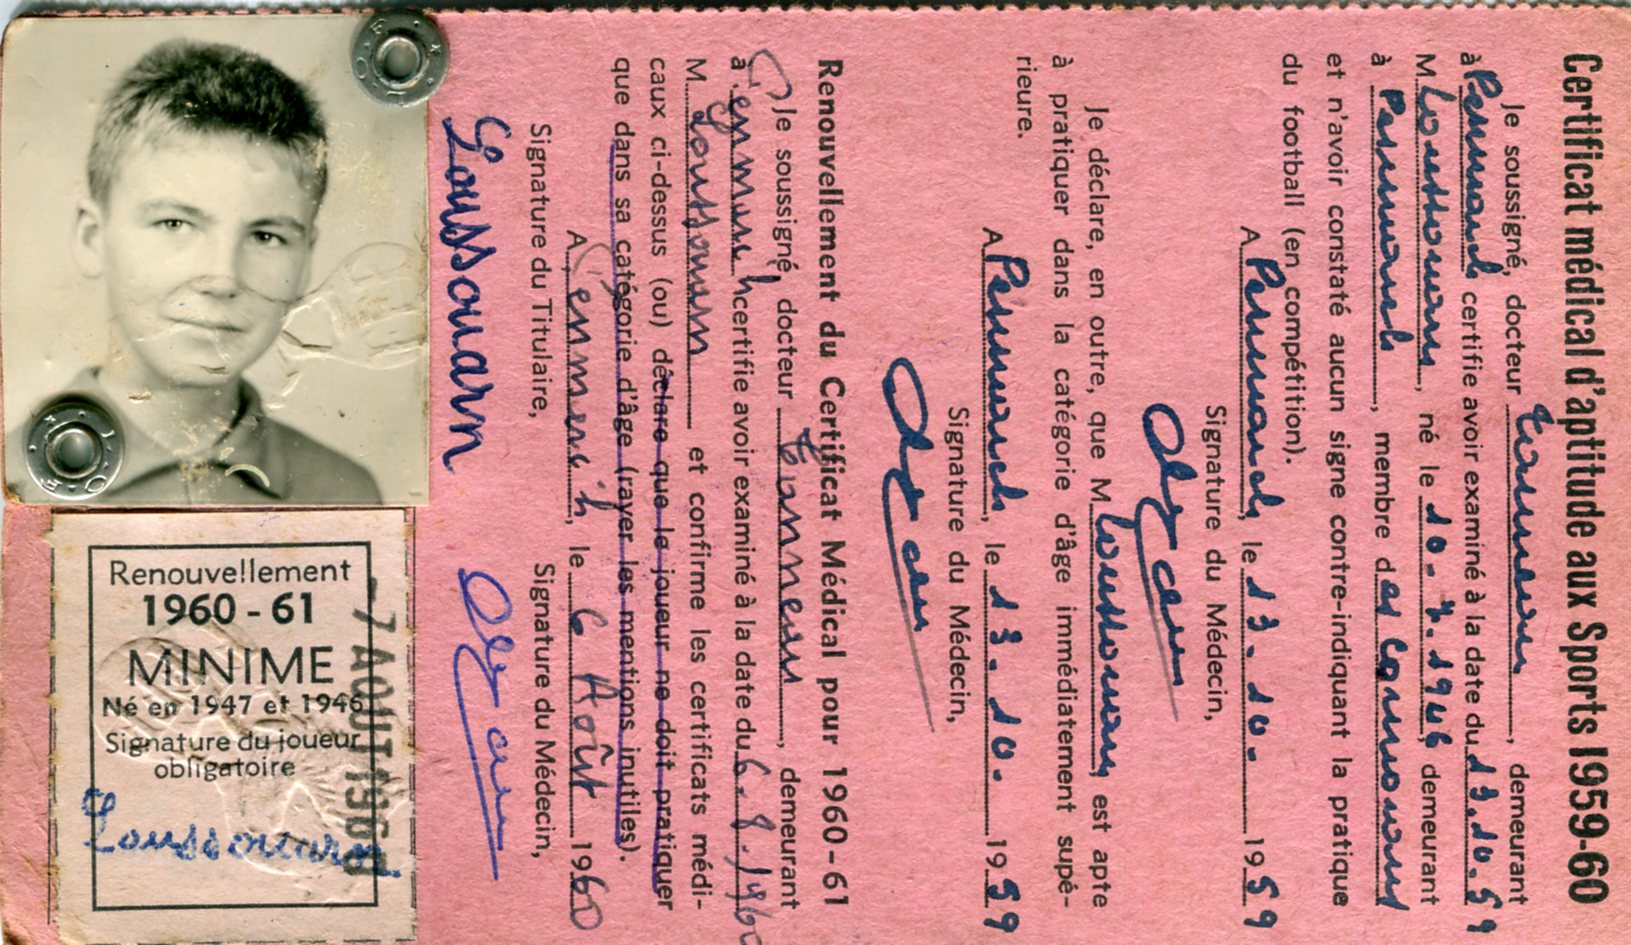 Certificat médical d'aptitude aux Sports 1959-60
Je soussigné, docteur Tanneau, demeurant
à Penmarch certifie avoir examiné à la date du 13.10.59
M. Loussouarn, né le 10.7.1946 demeurant
à Penmarch, membre des Cormorans
et n'avoir constaté aucun signe contre-indiquant la pratique
du football (en compétition).
A Penmarch, le 13.10. 1959
Signature du Médecin,
Je déclare, en outre, que M Loussouarn, est apte
à pratiquer dans la catégorie d'âge immédiatement supé-
rieure.
A Penmarch, le 13.10. 1959
Signature du Médecin,
Renouvellement du Certificat Médical pour 1960-61
Je soussigné, docteur Tanneau, demeurant
à Penmarch certifie avoir examiné à la date du 6.8.1960
M. Loussouarn et confirme les certificats médi-
caux ci-dessus (ou) déclare que le joueur ne doit pratiquer
que dans sa catégorie d'âge (rayer les mentions inutiles).
A Penmarch, le 6 Août 1960
Signature du Titulaire, Signature du Médecin,
Loussouarn
Renouvellement
1960-61
MINIME
Né en 1947 et 1946
Signature du joueur
obligatoire
Loussouarn
-7 AOUT 1960